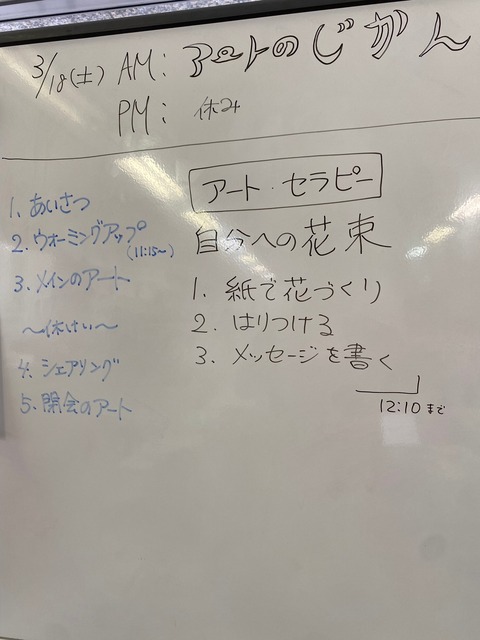 3/18(土) AM: アートのじかん
PM: 休み
アート・セラピー
自分への花束
1. 紙で花づくり
2. はりつける
3. メッセージを書く
12:10まで
1. あいさつ
2. ウォーミングアップ
(11:15〜)
3. メインのアート
〜休けい〜
4. シェアリング
5. 閉会のアート